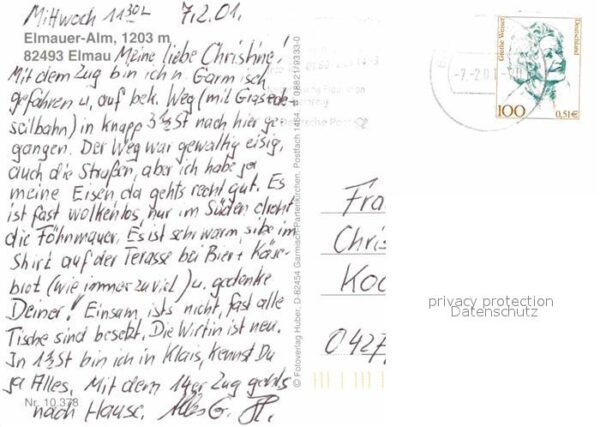 Mittwoch 11³⁰h 7.2.01.
Elmauer-Alm, 1203 m
82493 Elmau
Meine liebe Christine!
Mit dem Zug bin ich n. Garmisch
gefahren u. auf bek. Weg (mit Graseck-
seilbahn) in knapp 3½St nach hier ge-
gangen. Der Weg war gewaltig eisig,
auch die Straßen, aber ich habe ja
meine Eisen, da gehts recht gut. Es
ist fast wolkenlos, nur im Süden droht
die Föhnmauer. Es ist sehr warm, sitze im
Shirt auf der Terasse bei Bier + Käse-
brot (wie immer zuviel) u. gedenke
Deiner! Einsam, ists nicht, fast alle
Tische sind besetzt. Die Wirtin ist neu.
In 1½St bin ich in Klais, kennst Du
ja Alles. Mit dem 14er Zug gehts
nach Hause. Alles G.
Nr. 10.378
© Fotoverlag Huber, D-82454 Garmisch-Partenkirchen, Postfach 1454, 08821/9333-0
Deutsche Post
-7.-2.01
Grethe Weiser
Deutschland
100
0,51€
Fra
Chris
Koc
0427
privacy protection
Datenschutz